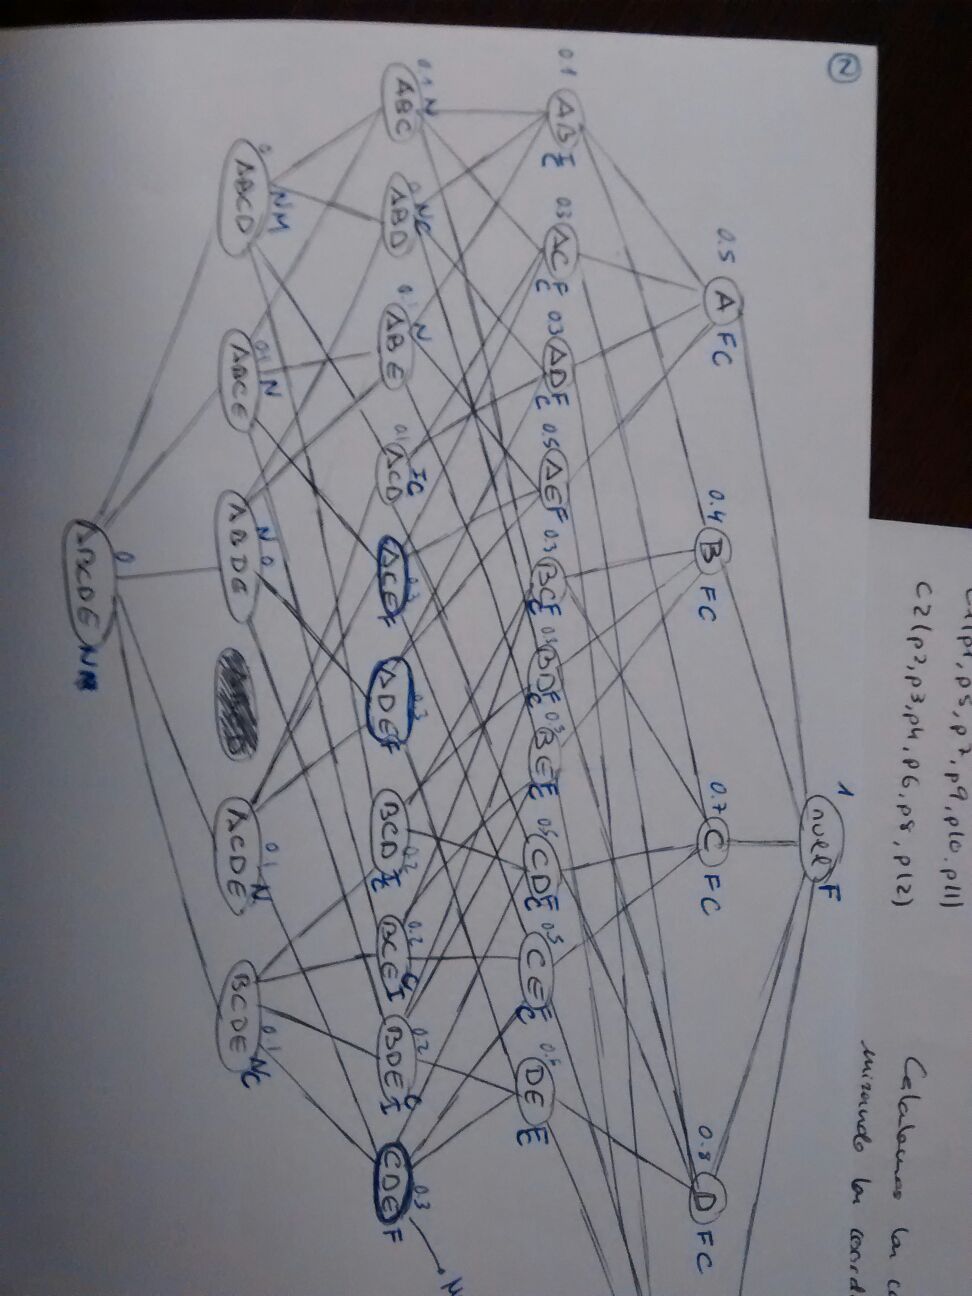 C1(p1, p5, p7, p9, p10, p11)
C2(p2, p3, p4, p6, p8, p12)
Calculamos los
mirando los
2
1 null F
0.5 A FC 0.4 B FC 0.7 C FC 0.8 D FC
0.1 AB I C 0.3 AC F C 0.3 AD F C 0.5 AE F 0.3 BC F C BD C BE C 0.5 CD F C 0.5 CE F C DE F
0.1 N ABC NC ABD N ABE 0.1 IC ACD 0.3 ACE F 0.3 ADE F 0.2 BCD I C 0.2 BCE C I 0.2 BDE C I 0.3 CDE F M
0 NM ABCD 0.1 N ABCE N 0 ABDE 0.1 N ACDE 0.1 NC BCDE
0 ABCDE NM